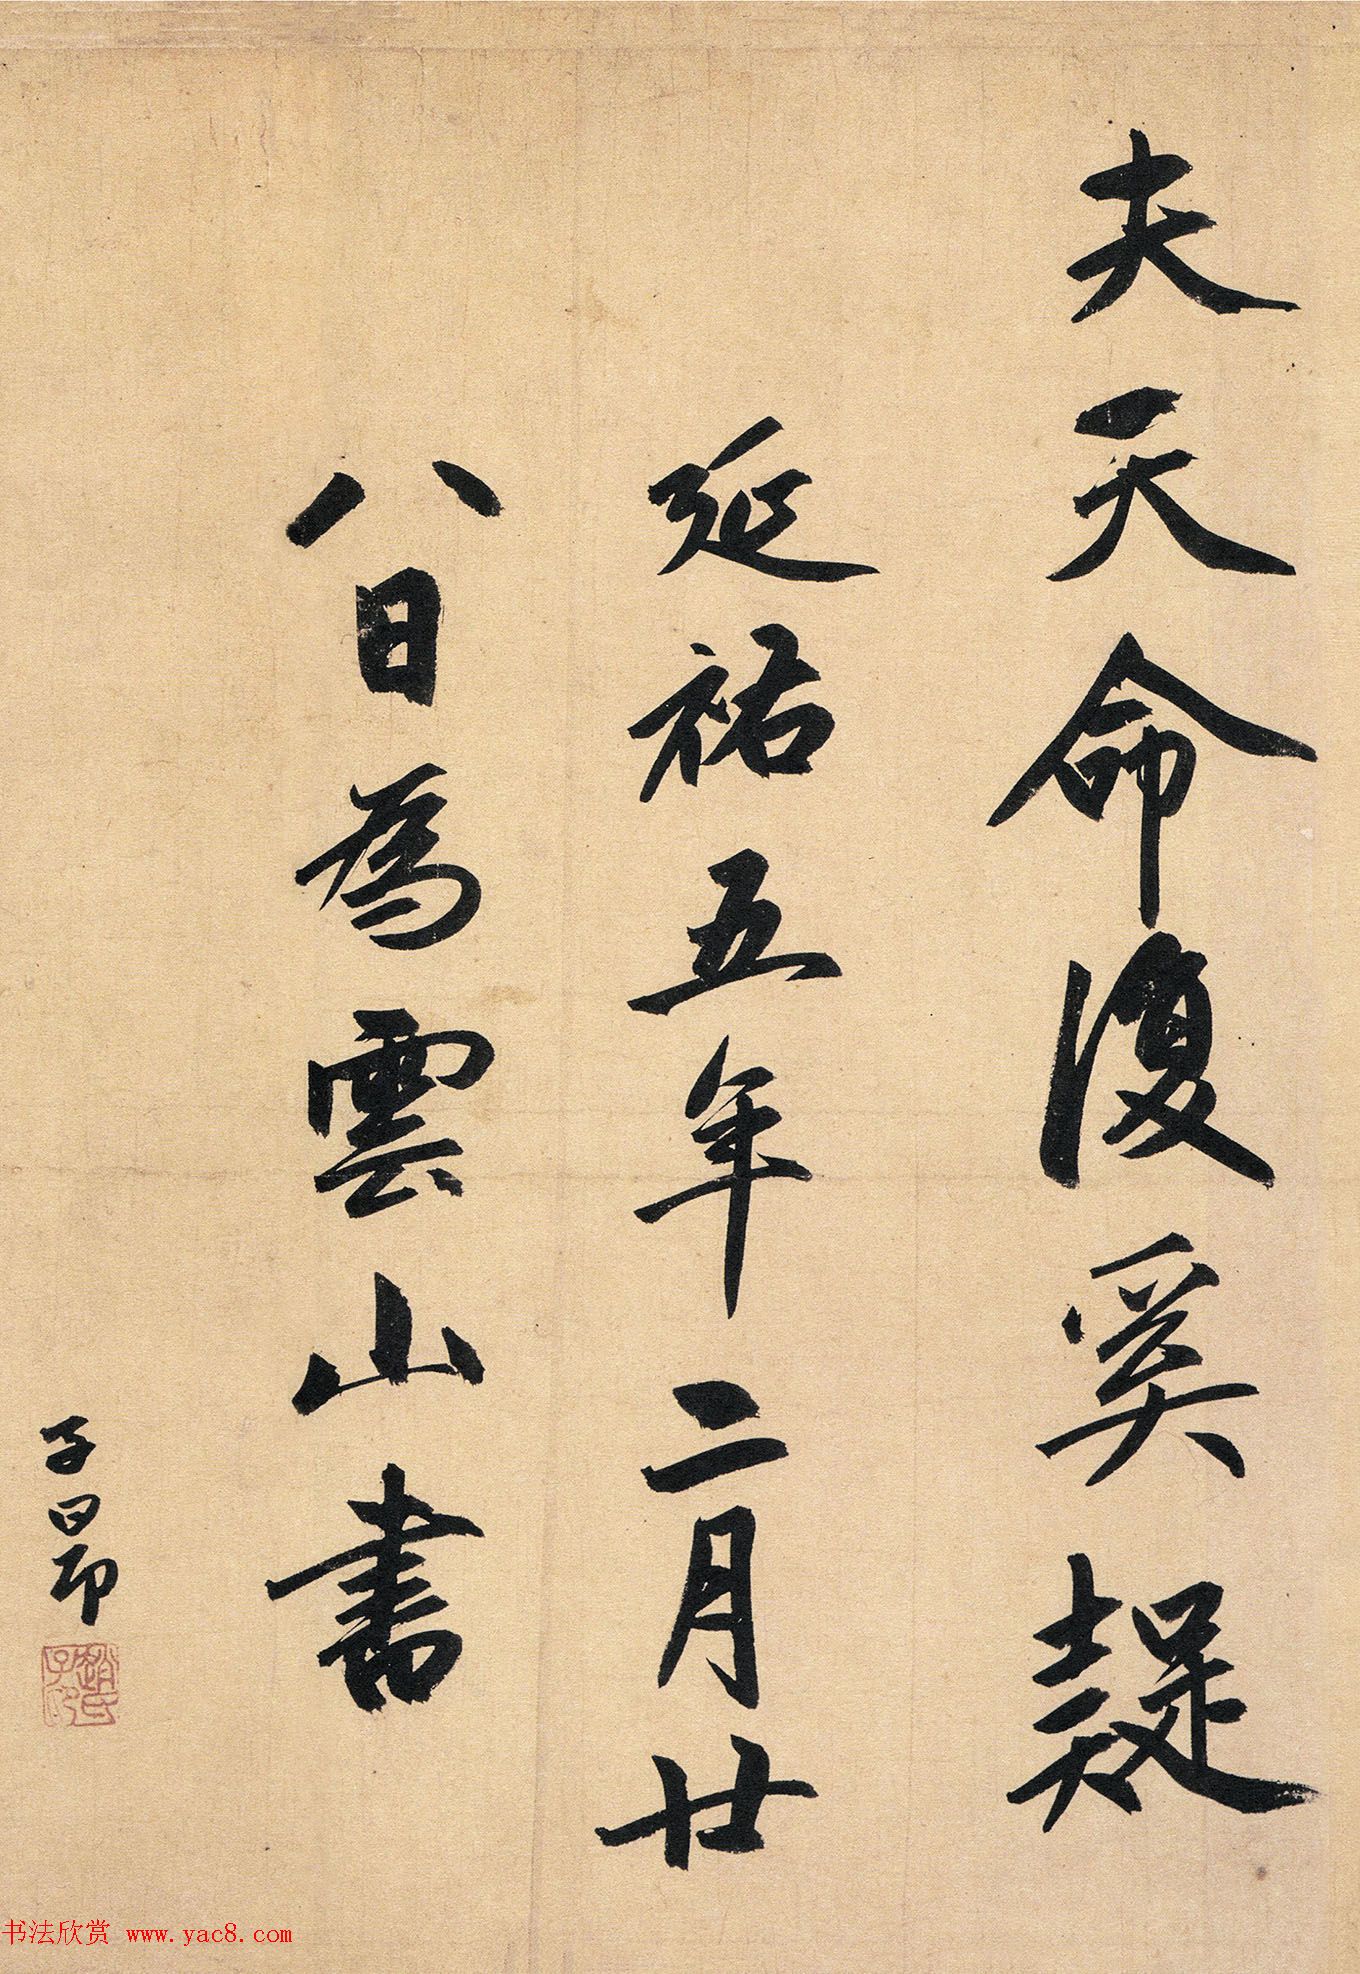 夫天命復奚疑
延祐五年二月廿
八日為雲山書
子昂
趙氏子昂
书法欣赏 www.yac8.com